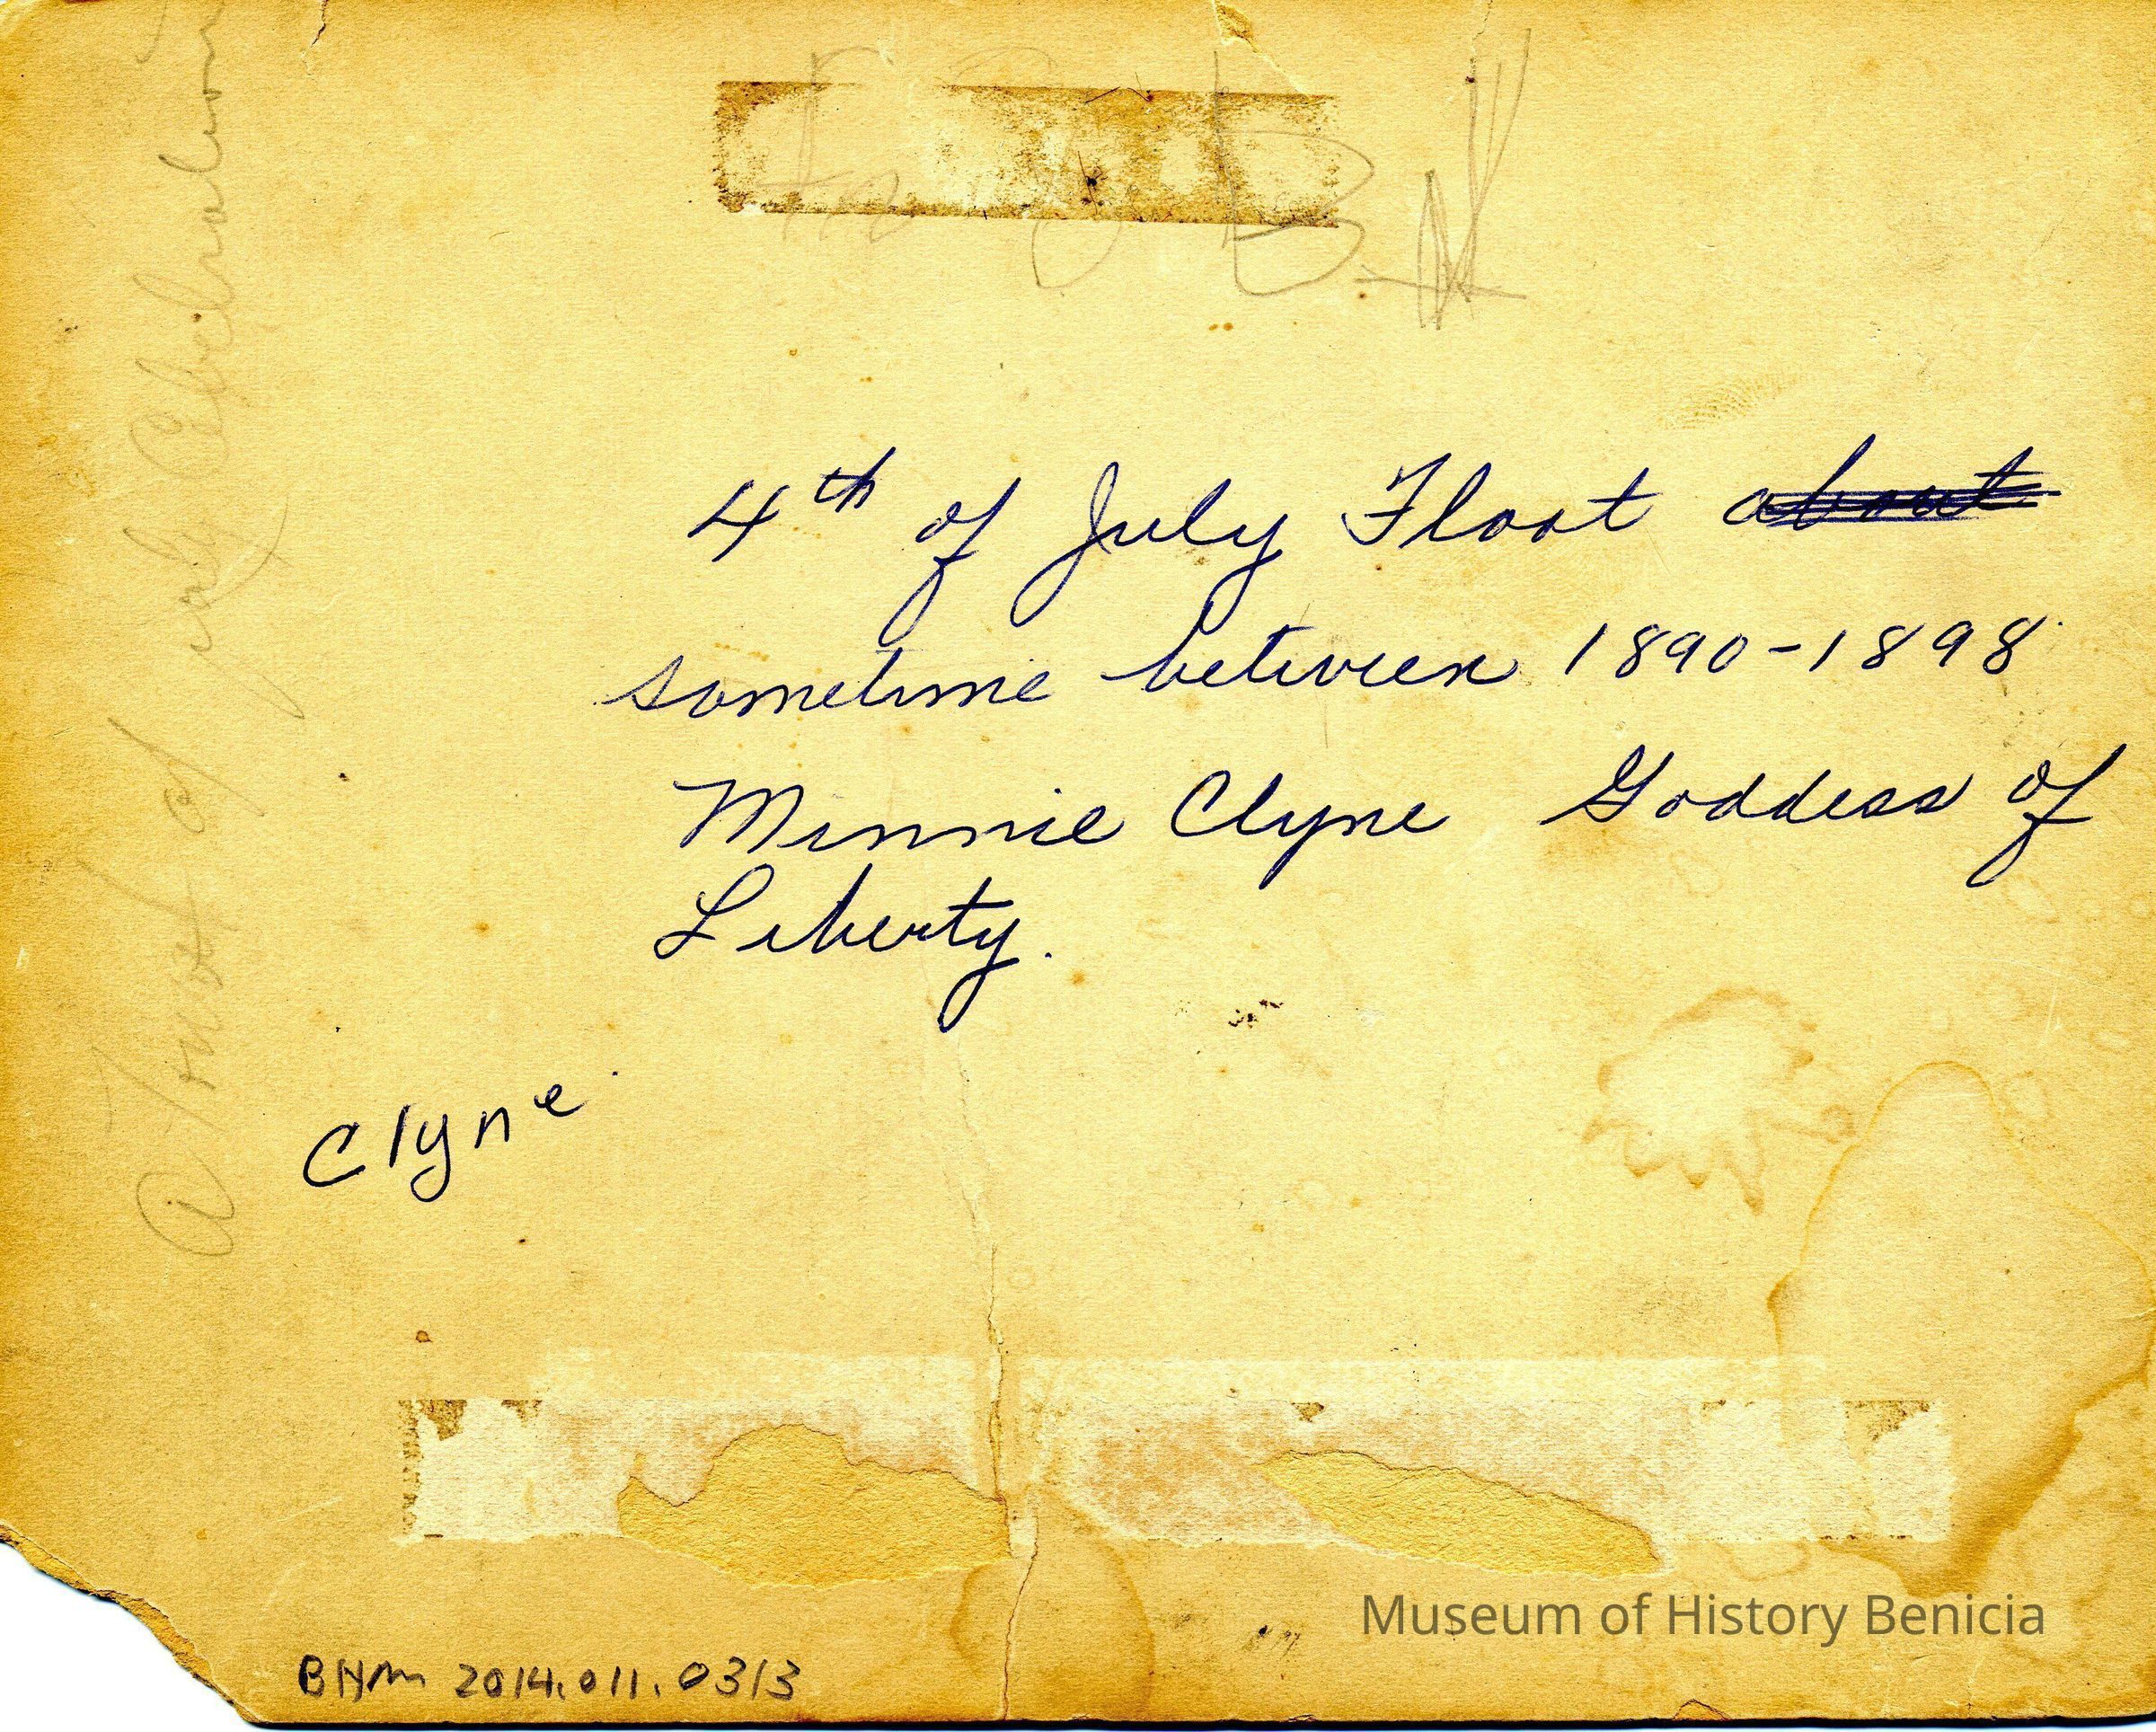 4th of July Float about
sometime between 1890-1898
Minnie Clyne Goddess of
Liberty.
Clyne
of July Celebration
BHM 2014.011.0313
Museum of History Benicia